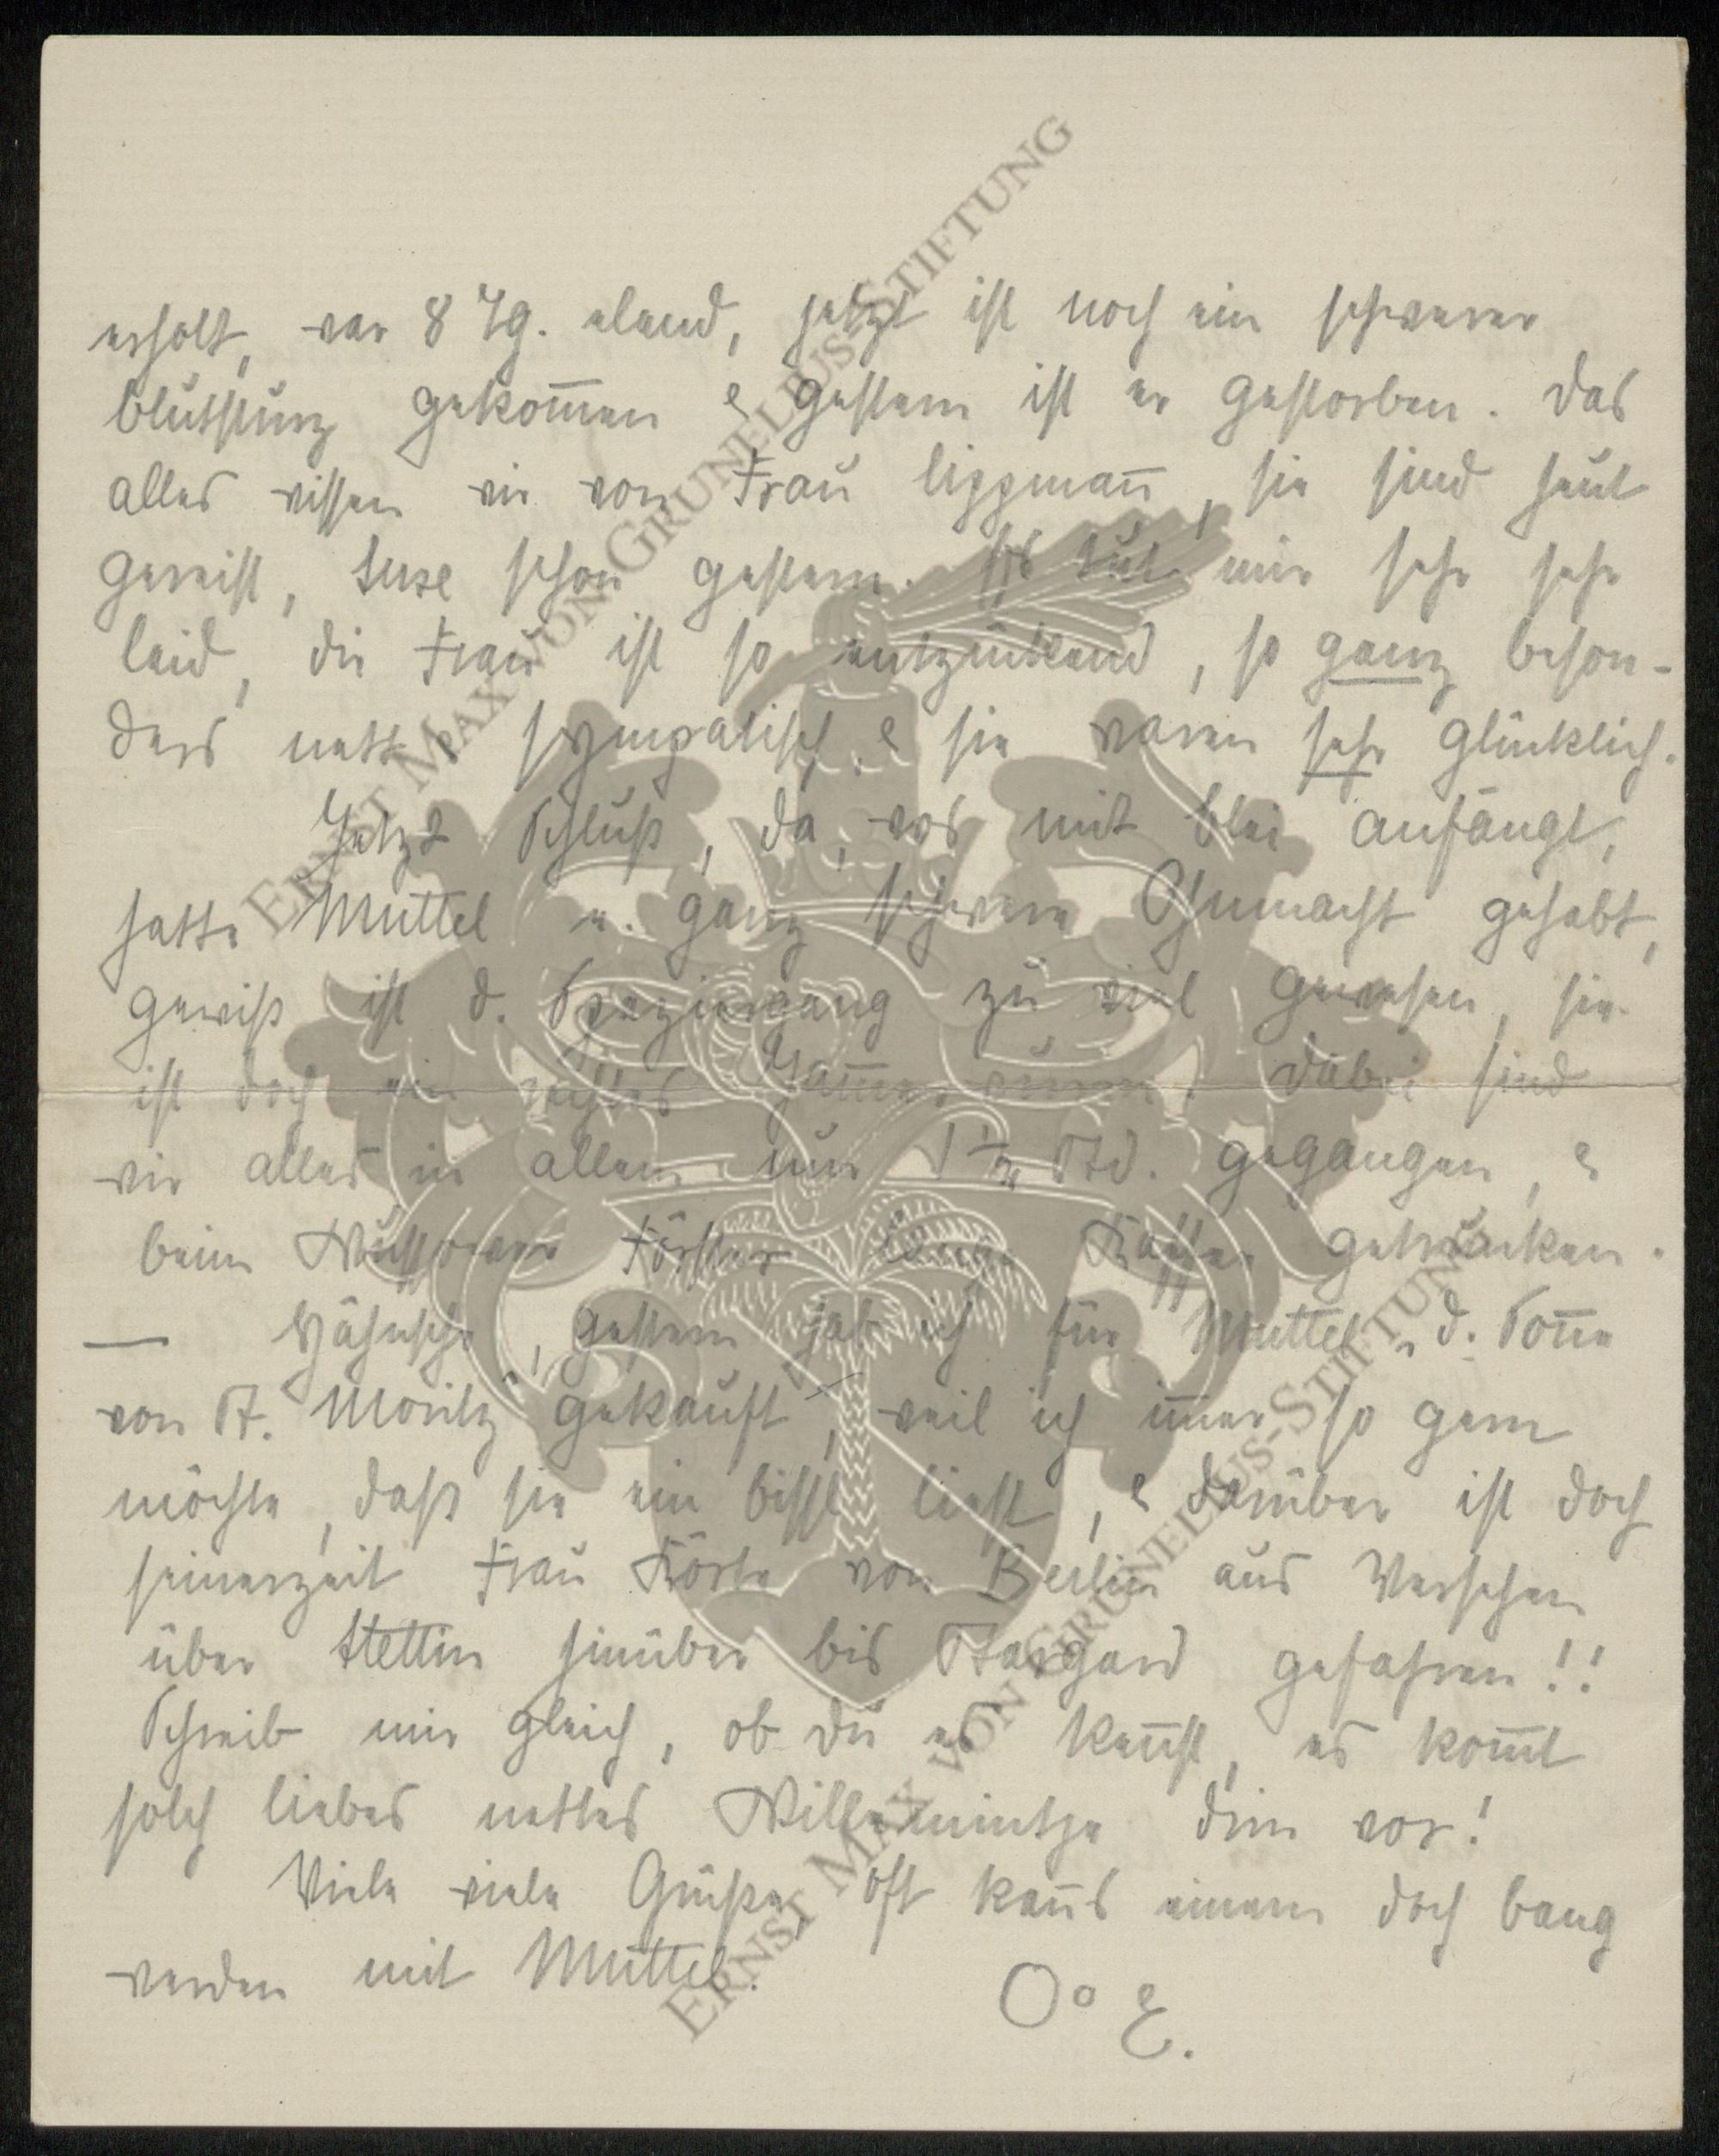 erholt, war 8 Tg. elend, jetzt ist noch ein schwerer
Blutsturz gekom̄en & gestern ist er gestorben. Das
alles wissen wir von Frau Lippman̄, sie sind heut
gereist, Suse schon gestern. Es tut mir sehr sehr
leid, die Frau ist so entzückend, so ganz beson-
ders nett & sympatisch, & sie waren sehr glücklich.
Jetzt Schluß, da, wos mit Blei anfängt,
hatte Muttel e. ganz schwere Ohnmacht gehabt,
gewiß ist d. Spaziergang zu viel gewesen, sie
ist doch ein rechtes Dabei sind
wir alles in allem nur 1 ½ Std. gegangen, &
beim Förster lange Kaffee getrunken.
— gestern hab ich für Muttel „d. Son̄e
von St. Moritz“ gekauft, weil ich im̄er so gern
möchte, daß sie ein bissl liest, & darüber ist doch
seinerzeit Frau Körte von Berlin aus Versehen
über Stettin hinüber bis Stargard gefahren!!
Schreib mir gleich, ob du es ken̄st, es kom̄t
solch liebes nettes drin vor!
Viele viele Grüße, oft kan̄s einem doch bang
werden mit Muttel.
O° E.
ERNST MAX VON GRUNELIUS-STIFTUNG
ERNST MAX VON GRUNELIUS-STIFTUNG